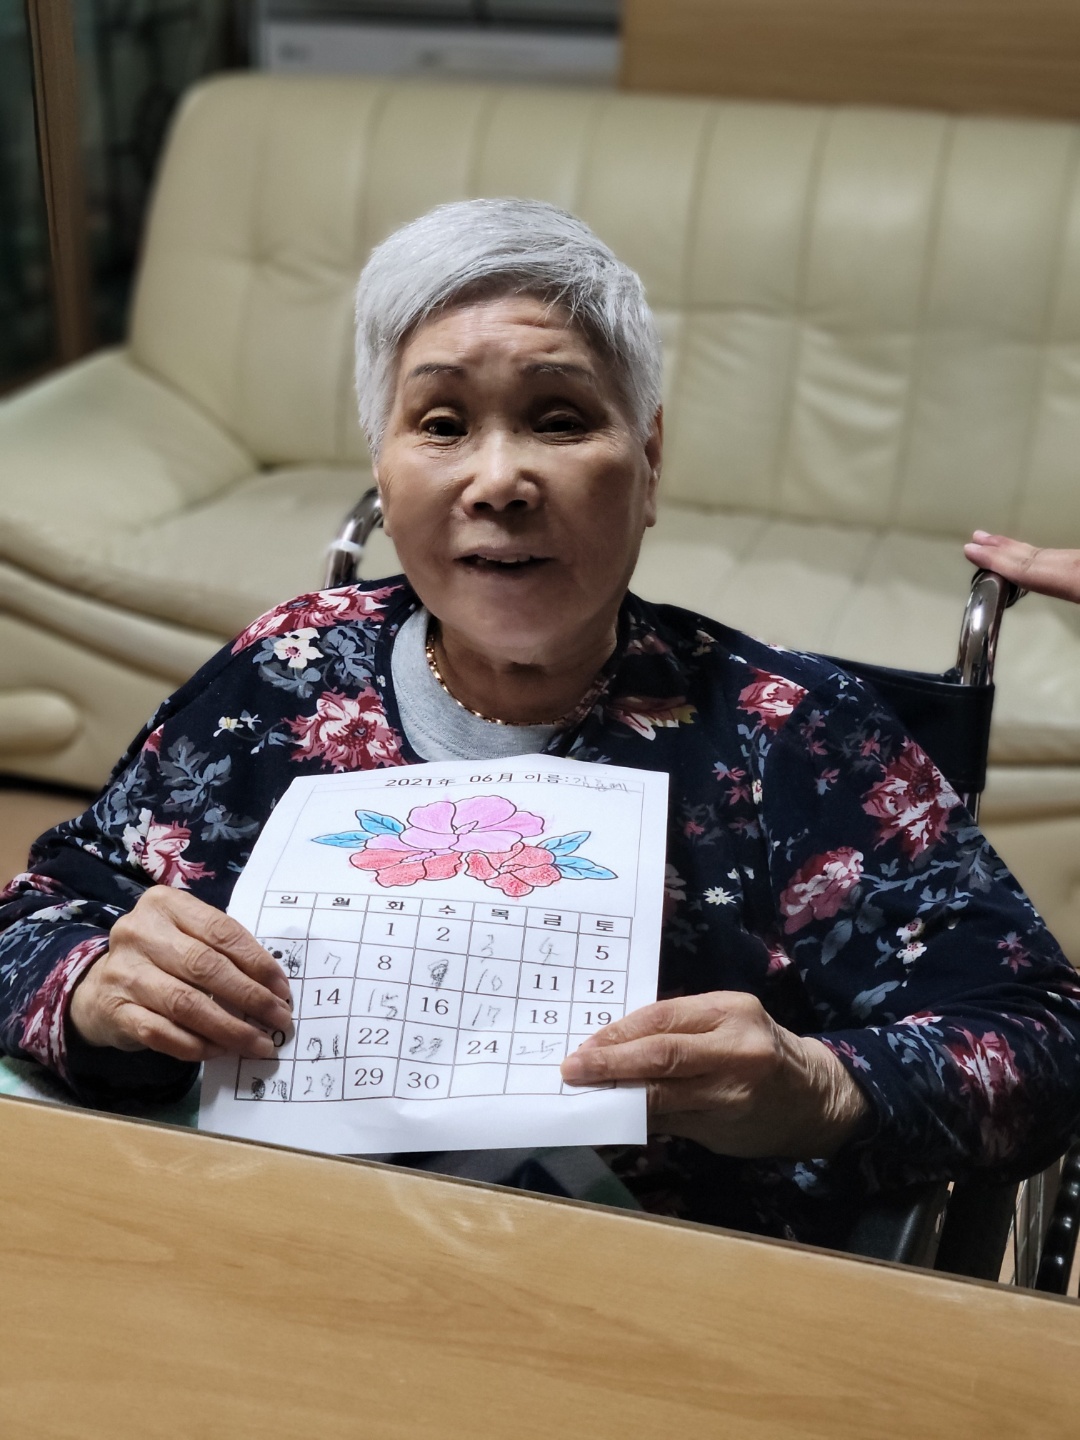 2021年 06月 이름:김
일 월 화 수 목 금 토
1 2 3 4 5
7 8 9 10 11 12
14 15 16 17 18 19
21 22 23 24 25
28 29 30